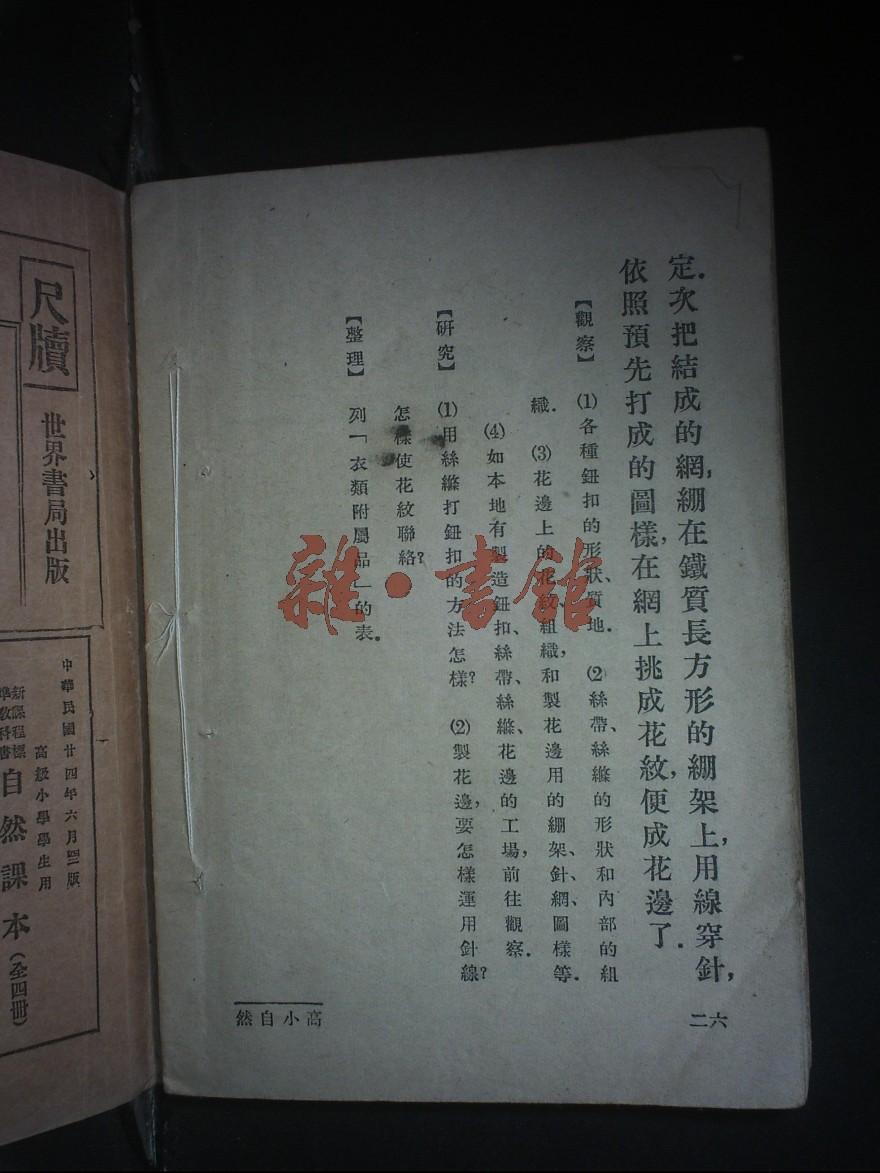 定.次把結成的網,綳在鐵質長方形的綳架上,用線穿針,
依照預先打成的圖樣,在網上挑成花紋,便成花邊了.
【觀察】 ⑴各種鈕扣的形狀、質地. ⑵絲帶、絲縧的形狀和內部的組
織. ⑶花邊上的花紋、組織,和製花邊用的綳架、針、網、圖樣等.
⑷如本地有製造鈕扣、絲帶、絲縧、花邊的工場,前往觀察.
【研究】 ⑴用絲縧打鈕扣的方法怎樣? ⑵製花邊,要怎樣運用針線?
怎樣使花紋聯絡?
【整理】 列「衣類附屬品」的表.
六二
高小自然
雜·書館
尺牘
世界書局出版
中華民國廿四年六月四版
高級小學學生用
新課程標
準教科書
自然課本(全四冊)